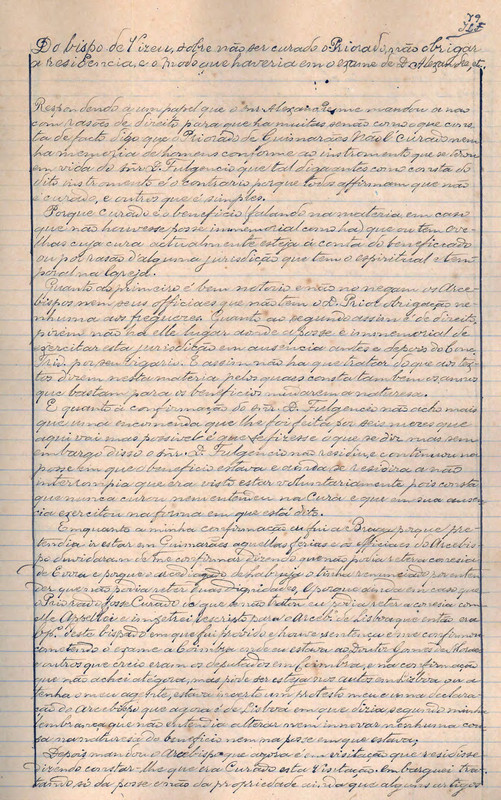 Do bispo de Vizeu, sobre não ser curado o Priorado, não obrigar
a residencia, e o modo que haveria em o exame de D. Alexandre, etc.
Respondendo a um papel que o snr Alexandre me mandou a nas
com rasões de direito para que ha muitas senão corso o que cons
ta de facto. Digo que o Priorado de Guimarães Não é curado nem
ha memoria de homens conforme ao instromento que se tirou
em vida do snr. D. Fulgencio que tal digan antes como consta do
dito instromento é o contrario porque todos affirmam que não
é curado, e outros que é simples.
Porque curado é o beneficio (falando na materia em caso
que não houvesse posse immemorial como ha) que ou tem ove
lhas cuja cura actualmente esteja á conta do beneficiado
ou por rasão d'alguma jurisdição que tem o espiritual e tem
poral na Igreja.
Quanto ao primeiro é bem notorio e não no negam os Arce
bispos nem seus officiaes que não tem o D. Prior obrigação ne
nhuma aos freguezes. Quanto ao segundo assim é de direito
porém não ha elle lugar aonde a posse é immemorial de
exercitar esta jurisdição em ausencia antes e depois do Conc.
Trid. por seu Vigario. E assim não ha que tratar do que os tex
tos dizem nesta materia pelos quaes consta tambem os annos
que bastam para os beneficios mudarem a natureza.
E quanto á confirmação do snr. D. Fulgencio não acho mais
que uma encomenda que lhe foi feita por seis mezes que
aqui vai mas possivel é que se fizesse o que se diz mas sem
embargo disso o snr. D. Fulgencio não residiu e continuou na
posse em que o beneficio estava e ainda que residira a não
interrompia que era visto estar voluntariamente pois consta
que nunca curou nem entendeu na cura e que em sua ausen
cia exercitou na forma em que está dito.
Emquanto a minha confirmação eu fui a Braga porque pre
tendia ir estar em Guimarães aquellas férias e os officiaes do Arcebis
po duvidaram de me confirmar dizendo que não podia reter a conesia
de Evora e porque o arcediagado de tinha renunciado por enten
der que não podia reter duas dignidades. E porque ainda em caso que
o Priorado fosse Curado o que eu não eu podia reter a conesia com
elle Appellei e impetrei Rescripto para o Arceb.º de Lisboa que então era
bp.º deste bispado em que fui provido e houve sentença e me confirmou
comtendo o exame a Coimbra onde eu estava ao Doutor Gomes de Moraes
e outros que creio eram os deputados em Coimbra, e na confirmação
que não achei atégora, mas póde ser esteja nos autos em Lisboa ou a
tenha o meu agente, estava inserto um protesto meu e uma declara
ção do Arcebispo que agora é de Lisboa em que dizia segundo minha
lembrança que não entendia alterar nem innovar nenhuma cou
sa na natureza do beneficio nem na posse em que estava.
Depois mandou o Arcebispo que agora é em visitação que residisse
dizendo constar-lhe que era Curado esta Visitação Embarguei tra
tando só da posse e não da propriedade ainda que alguns artigos